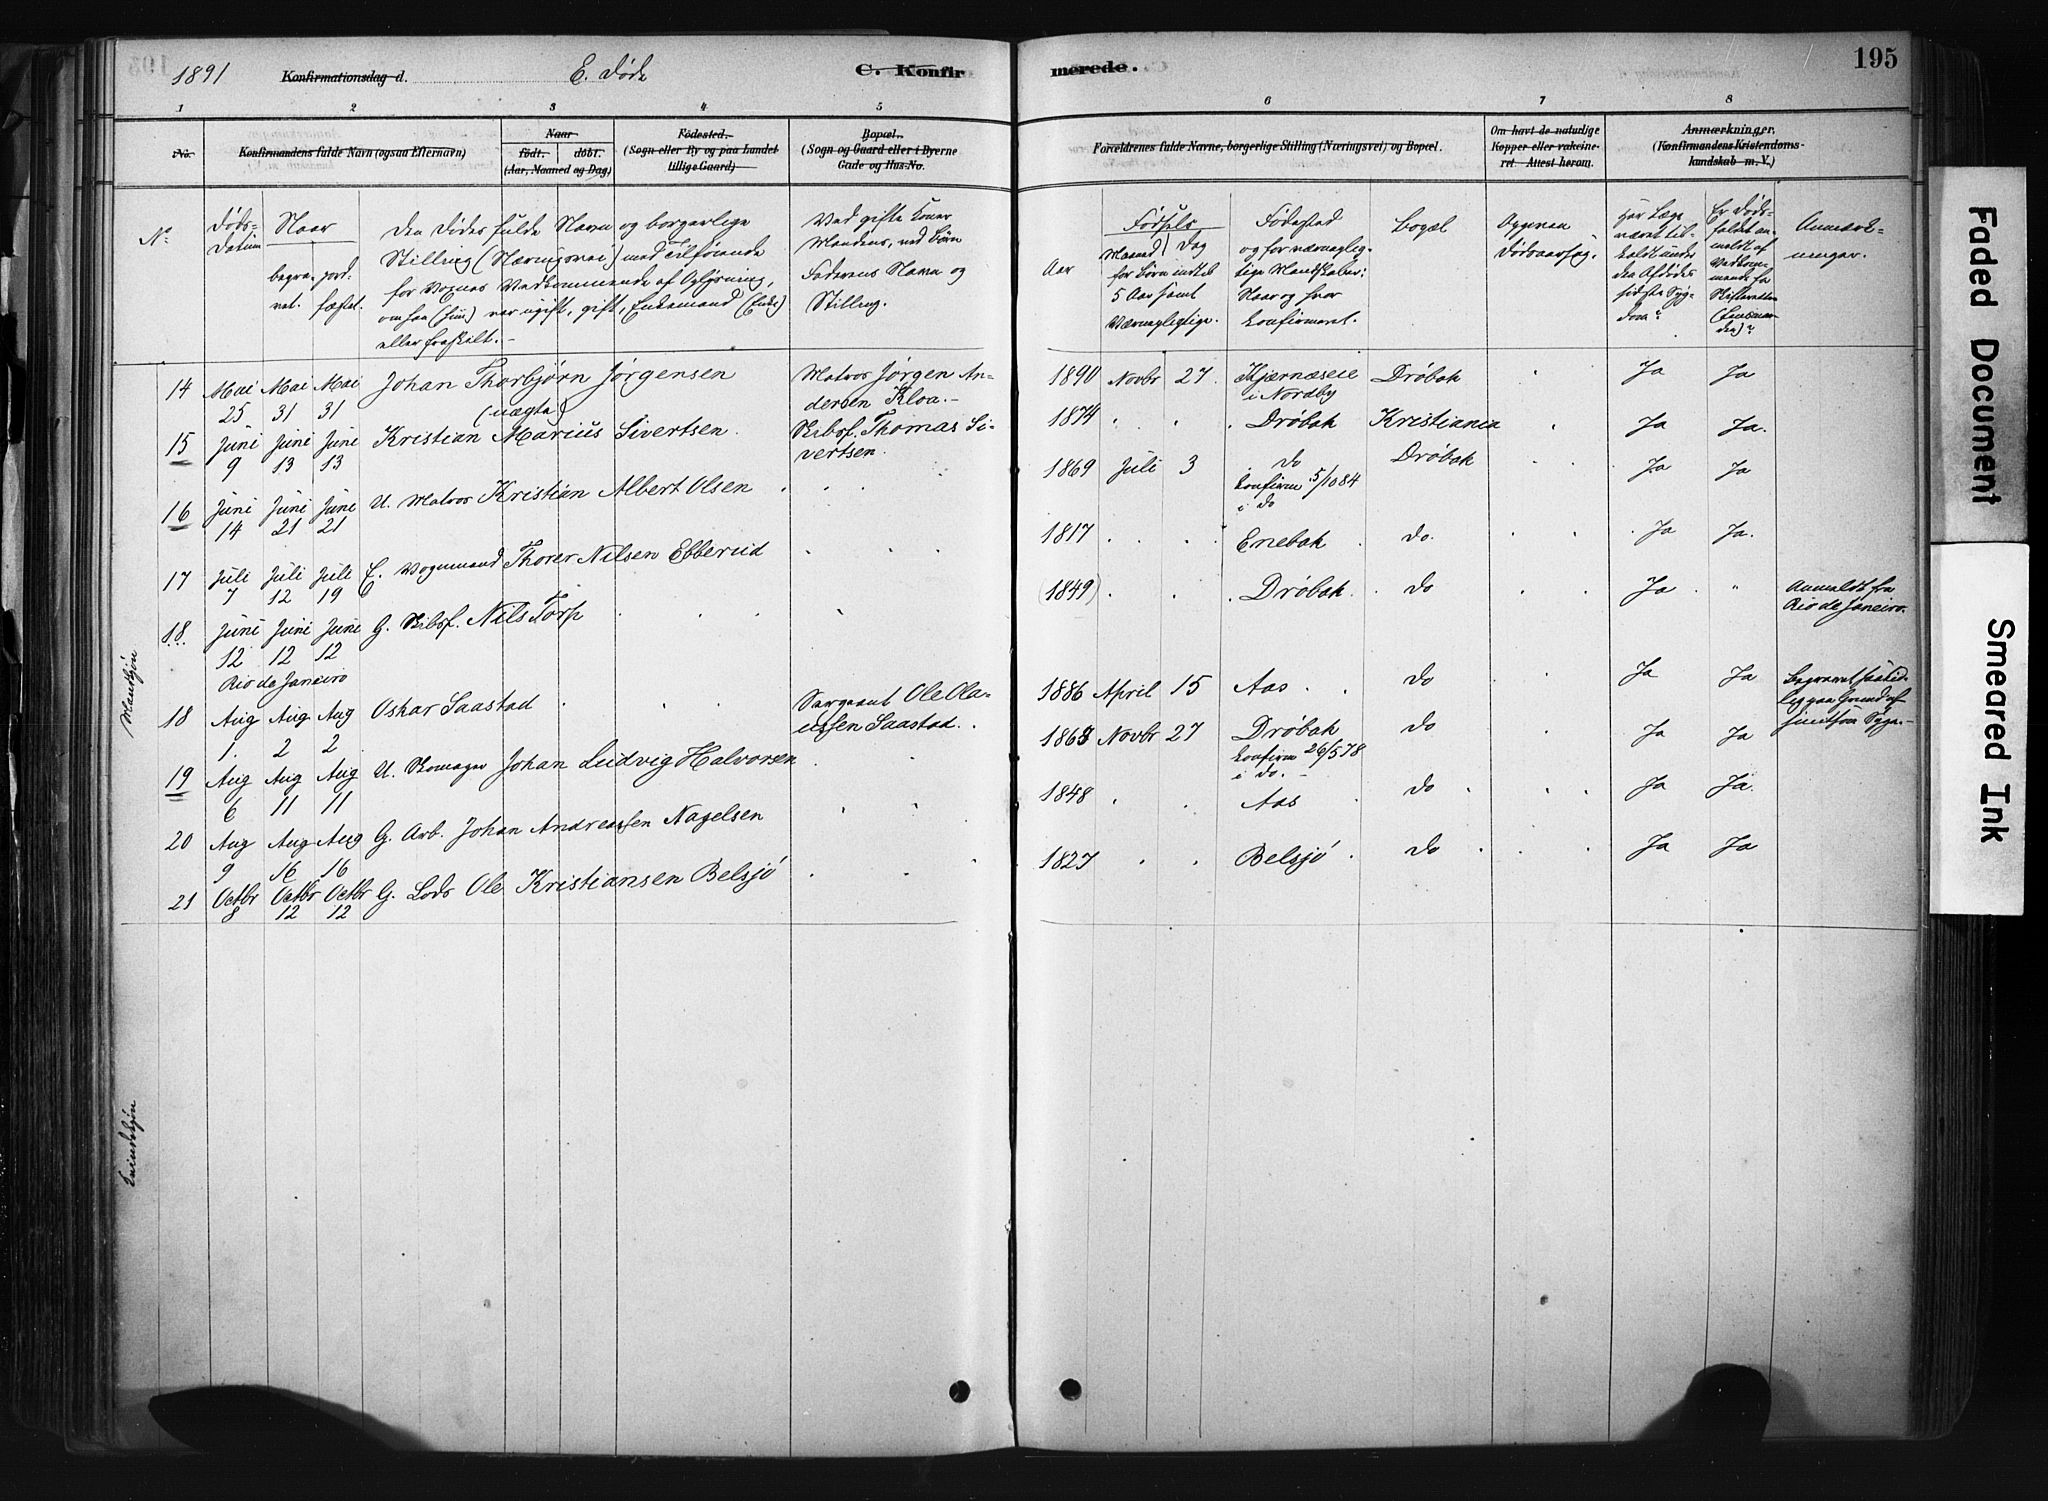 1891 Konfirmationsdag d. E. Døde C. Konfir merede. 195
1 2 3 4 5 6 7 8
No. Konfirmandens fulde Navn (ogsaa Efternavn) Naar født. døbt. (Aar, Maaned og Dag) Fødested. (Sogn eller By og paa Landet tillige Gaard) Bopæl. (Sogn og Gaard eller i Byerne Gade og Hus-No. Forældrenes fulde Navne, borgerlige Stilling (Næringsvei) og Bopæl. Om havt de naturlige Kopper eller vakcineret. Attest herom. Anmærkninger. (Konfirmandens Kristendomskundskab m. V.)
No. Døds-Datum Naar begravet. jordfæstet.
Den Dødes fulde Navn og borgerlige
Stilling (Næringsvei) med Tilføiende
for Voxnes Vedkommende af Oplysning,
om han (hun) var ugift, gift, Enkemand (Enke)
eller fraskilt.-
Ved gifte Koner
Mandens, ved Børn
Faderens Navn og
Stilling.
Aar Fødsels Maaned Dag
for Børn indtil
5 Aar samt
Værnepligtige.
Fødested
og for værneplig-
tige Mandskaber:
Naar og hvor
konfirmeret.
Bopæl
Opgiven
Dødsaarsag.
Har Læge
været til-
kaldt under
den Afdødes
sidste Syg-
dom?
Er Døds-
faldet an-
meldt af
Vedkom-
mende for
Skifteretten
(Lensman-
den)?
Anmærk-
ninger.
14 Mai 25 Mai 31 Mai 31 Johan Thorbjørn Jørgensen (uægte) Matros Jørgen An-
dersen Kloa.- 1890 Novbr 27. Kjærnæseie i Nordby Drøbak Ja Ja
15 Juni 9 Juni 13 Juni 13 Kristian Marius Sivertsen. Skibsf. Thomas Si-
vertsen. 1874 Drøbak Kristiania Ja Ja.
16 Juni 14 Juni 21 Juni 21 U. Matros Kristian Albert Olsen 1869 Juli 3 Do konfirm 5/10 84 i Do Drøbak Ja Ja
17 Juli 7 Juli 12 Juli 19 E. Vognmand Thorer Nilsen Ebberud 1817 Enebak Do. Ja Ja.
18. Juni 12 Juni 12 Juni 12 Rio de Janeiro G. Skibsf. Nils Torp (1849) Drøbak. Do Ja " Anmeldt fra
Rio de Janeiro.
18 Aug 1. Aug 2 Aug 2 Oskar Saastad Sergeant Ole Ola-
ussen Saastad. 1886 April 15 Aas Do Ja Ja Begravet saa tid-
lig paa Grund af
smitsom Syge.-
19 Aug 6 Aug 11 Aug 11 U. Skomager Johan Ludvig Halvorsen 1863 Novbr 27 Drøbak konfirm 26/5 78 i Do.- Do Ja Ja
20 Aug 9 Aug 16 Aug 16 G. Arb. Johan Andreassen Nagelsen 1848 Aas Do Ja Ja.
21 Octbr 8 Octbr 12 Octbr 12 G. Lods Ole Kristiansen Belsjø 1827 Belsjø Do Ja Ja
Mandkjøn
Kvindekjøn
Faded Document
Smeared Ink